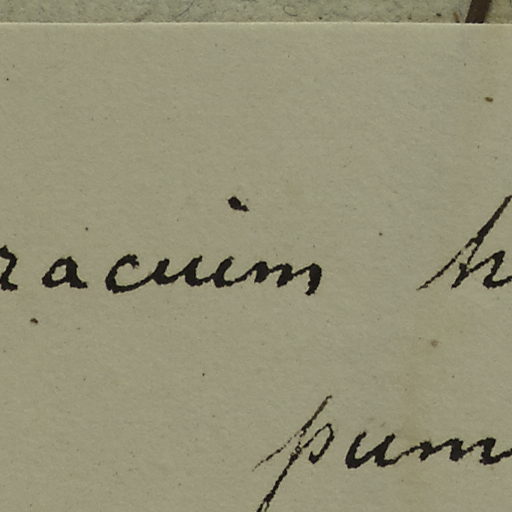 racium h
pum